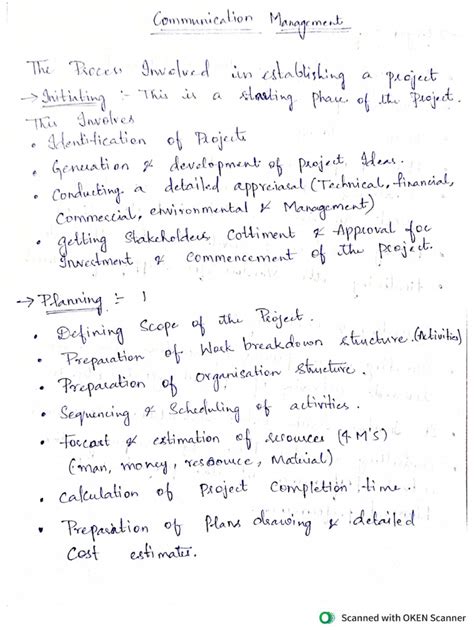 Communication Management
The Process Involved in establishing a project
→ Initiating :- This is a starting phase of the Project.
This Involves
• Identification of Projects
• Generation & development of project Ideas.
• Conducting a detailed appreiasal (Technical, financial,
Commercial, environmental & Management)
• getting Stakeholders Cottiment & Approval for
Investment & Commencement of the project.
→ Planning :-
• Defining Scope of the Project.
• Preparation of Work breakdown structure. (Activities)
• Preparation of Organisation Structure.
• Sequencing & Scheduling of activities.
• forcast & estimation of resources (4 M'S)
(man, money, resource, Material)
• Calculation of Project Completion time.
• Preparation of Plans drawing & detailed
Cost estimates.
Scanned with OKEN Scanner